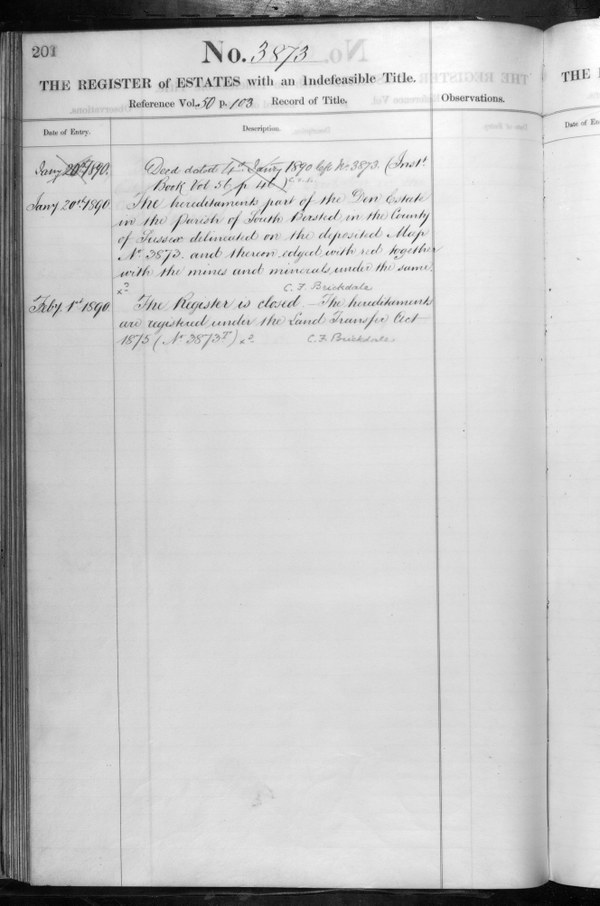 201
No. 3873
THE REGISTER of ESTATES with an Indefeasible Title.
Reference Vol. 50 p. 103 Record of Title.
Observations.
Date of Entry.
Description.
Jany 20th 1890.
Deed dated 4th Jany 1890 left No 3873. (Instt
Book Vol 56 p 46)
Jany 20th 1890
The hereditaments part of the Den Estate
in the Parish of South Bersted in the County
of Sussex delineated on the deposited Map
No 3873 and thereon edged with red together
with the mines and minerals under the same.
C. F. Brickdale
Feby 1st 1890
The Register is closed. The hereditaments
are registered under the Land Transfer Act
1875 (No 3873T)
C. F. Brickdale
THE
Date of En